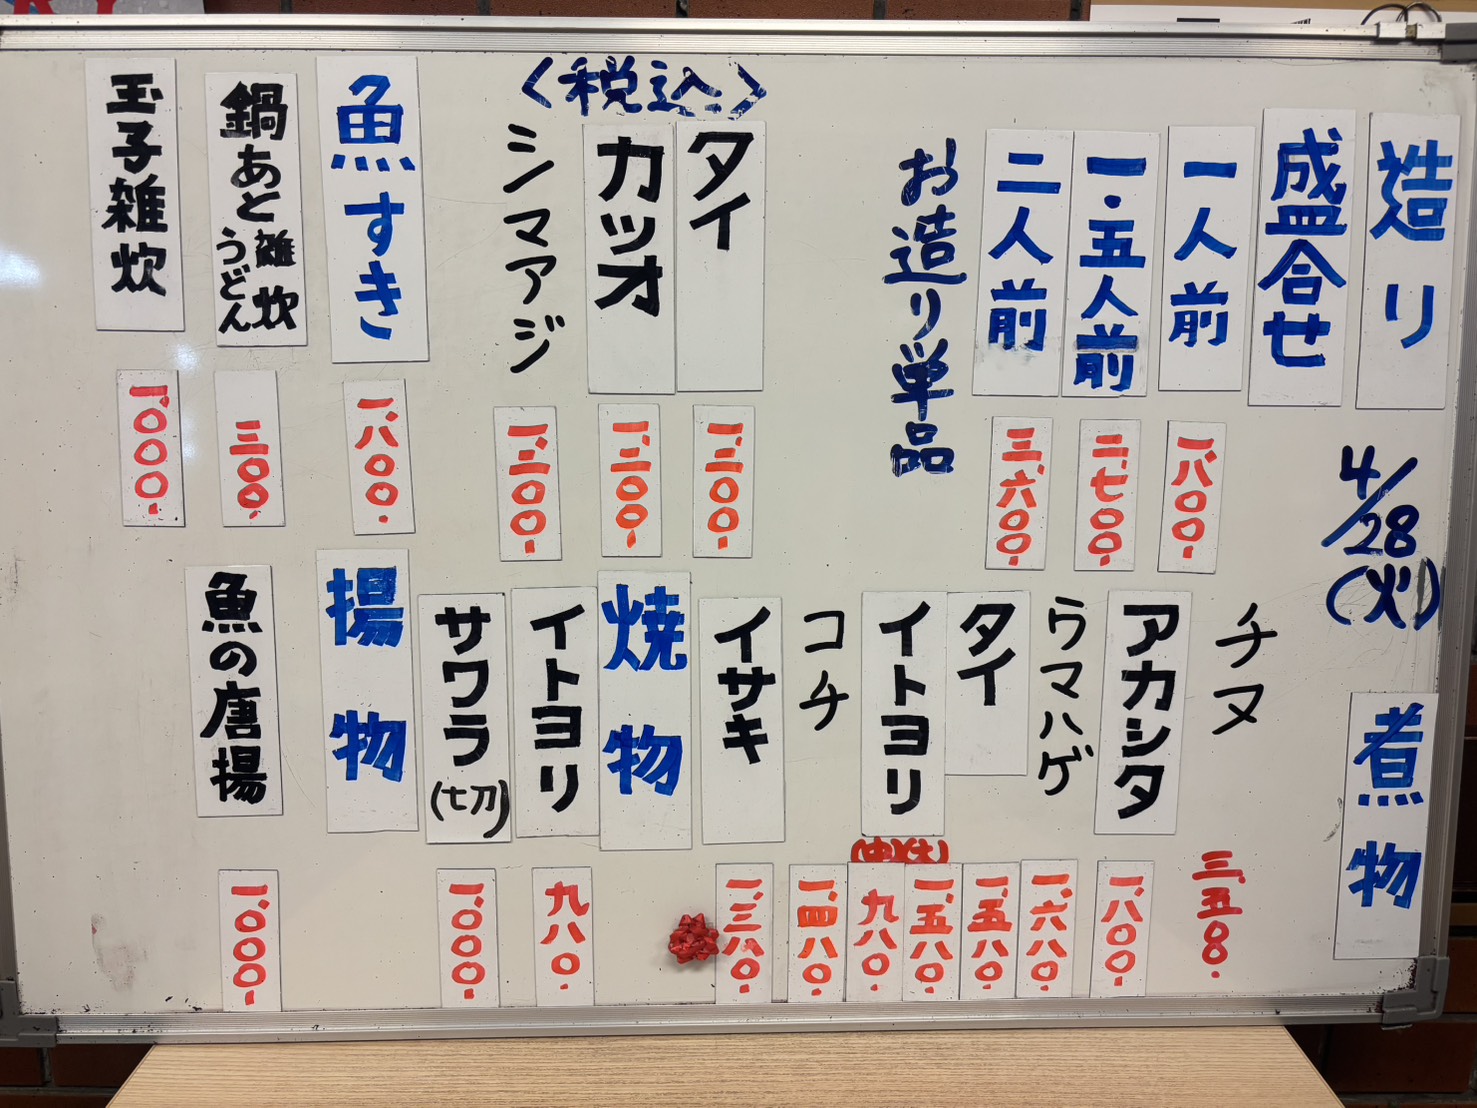 造り
盛合せ
一人前
一、八〇〇.
一・五人前
二、七〇〇.
二人前
三、六〇〇.
お造り単品
〈税込〉
タイ
一、三〇〇.
カツオ
一、二〇〇.
シマアジ
一、三〇〇.
魚すき
一、八〇〇.
鍋あと雑炊
うどん
三〇〇.
玉子雑炊
一、〇〇〇.
4/28
(火)
煮物
チヌ
三、五〇〇.
アカシタ
一、八〇〇.
ウマハゲ
一、六八〇.
タイ
一、五八〇.
イトヨリ
(大)
一、五八〇.
(中)
九八〇.
コチ
一、四八〇.
イサキ
一、三八〇.
焼物
イトヨリ
九八〇.
サワラ
(切)
一、〇〇〇.
揚物
魚の唐揚
一、〇〇〇.